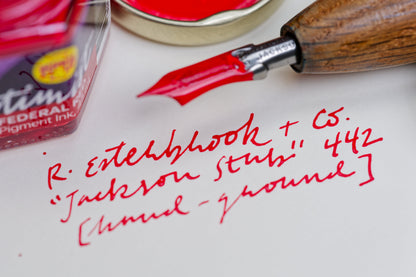 FEDERAL
Pigment Ink
R. Esterbrook + Co.
"Jackson Stub" 442
[hand-ground]